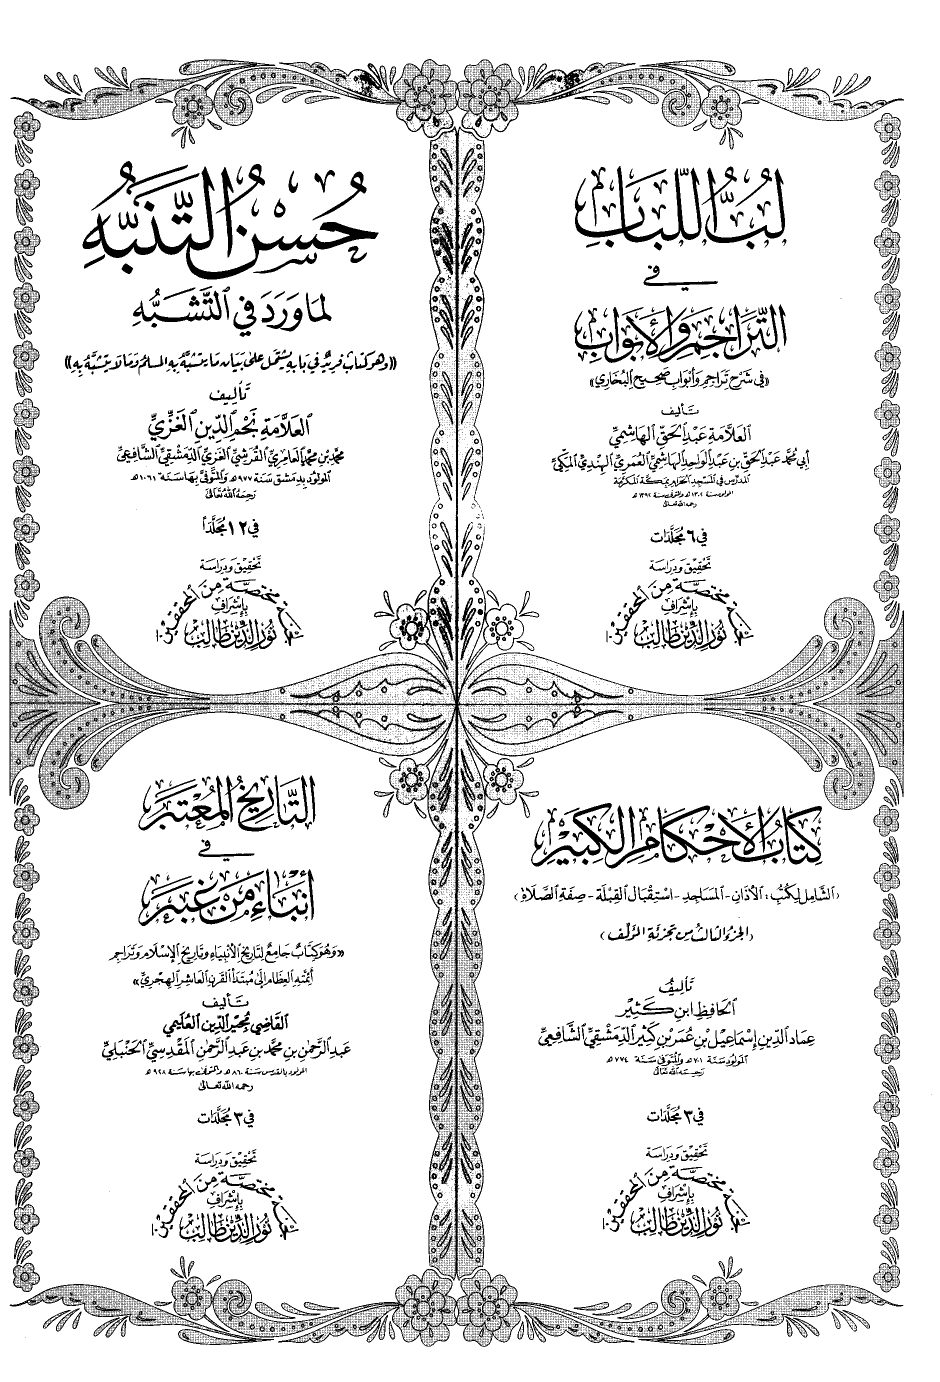 لُبُّ اللُّبَابِ
في
التَّرَاجِمِ وَالأَبْوَابِ
«في شَرْحِ تَرَاجِمِ وَأَبْوَابِ صَحِيحِ البُخَارِي»
تَأليف
العَلَّامَةِ عَبْدِ الحَقِّ الهَاشِمِيِّ
أبي مُحَمَّد عَبْدِ الحَقِّ بنِ عَبْدِ الوَاحِدِ الهَاشِمِيِّ العُمَرِيِّ الهِنْدِيِّ المَكِّيِّ
المُدَرِّسِ فِي المَسْجِدِ الحَرَامِ بِمَكَّةَ المُكَرَّمَةِ
المولود سنة ١٣٠٢ هـ والمتوفى سنة ١٣٩٢ هـ
رحمه الله تعالى
في ٦ مُجَلَّدَات
تَحْقِيق وَدِرَاسَة
لجنة مختصة من المحققين
بإشراف
نُورِ الدِّين طَالِب
حُسْنُ التَّنَبُّهِ
لِمَا وَرَدَ فِي التَّشَبُّهِ
((وهو كتابٌ فريدٌ في بابه يشتمل على بيان ما يتشبَّهُ به المسلم وما لا يتشبَّهُ به))
تَأليف
العَلَّامَةِ نَجْمِ الدِّينِ الغَزِّيِّ
مُحَمَّد بن مُحَمَّد العَامِرِيِّ القُرَشِيِّ الغَزِّيِّ الدِّمَشْقِيِّ الشَّافِعِيِّ
المولود بدمشق سنة ٩٧٧ هـ والمتوفى بها سنة ١٠٦١ هـ
رحمه الله تعالى
في ١٢ مُجَلَّدًا
تَحْقِيق وَدِرَاسَة
لجنة مختصة من المحققين
بإشراف
نُورِ الدِّين طَالِب
كِتَابُ الأَحْكَامِ الكَبِيْرِ
(الشَّامِل لِكُتُبِ: الأَذَانِ - المَسَاجِدِ - اسْتِقْبَال القِبْلَة - صِفَة الصَّلَاة)
(الجزء الثالث من تجزئة المؤلف)
تَأليفُ
الحَافِظِ ابنِ كَثِيْر
عِمَاد الدِّين إِسْمَاعِيْل بْن عُمَر بْن كَثِيْر الدِّمَشْقِيِّ الشَّافِعِيِّ
المولود سنة ٧٠١ هـ والمتوفى سنة ٧٧٤ هـ
رحمه الله تعالى
في ٣ مُجَلَّدَات
تَحْقِيق وَدِرَاسَة
لجنة مختصة من المحققين
بإشراف
نُورِ الدِّين طَالِب
التَّارِيخُ المُعْتَبَر
في
أَنْبَاءِ مَنْ غَبَر
«وَهُوَ كِتَابٌ جَامِعٌ لِتَارِيخِ الأَنْبِيَاءِ وَتَارِيخِ الإِسْلَامِ وَتَرَاجِمِ
أَئِمَّتِهِ العِظَامِ إِلَى مُبْتَدَأِ القَرْنِ العَاشِرِ الهِجْرِيِّ»
تَأليف
القَاضِي مُجِيْرِ الدِّين العُلَيْمِي
عَبْدِ الرَّحْمَنِ بن مُحَمَّد بن عَبْدِ الرَّحْمَنِ المَقْدِسِيِّ الحَنْبَلِيِّ
المولود بالقدس سنة ٨٦٠ هـ والمتوفى بها سنة ٩٢٨ هـ
رحمه الله تعالى
في ٣ مُجَلَّدَات
تَحْقِيق وَدِرَاسَة
لجنة مختصة من المحققين
بإشراف
نُورِ الدِّين طَالِب